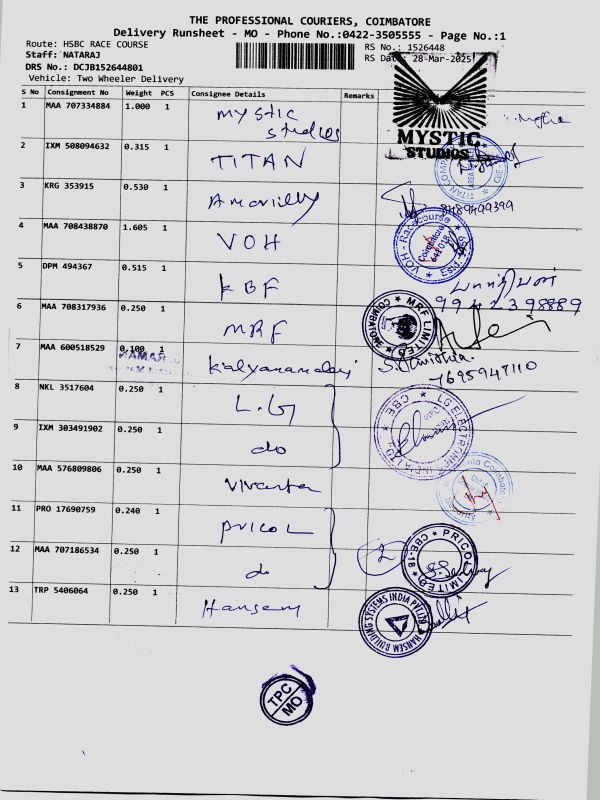 THE PROFESSIONAL COURIERS, COIMBATORE
Delivery Runsheet - MO - Phone No.:0422-3505555 - Page No.:1
Route: HSBC RACE COURSE
RS No.: 1526448
Staff: NATARAJ
RS Date: 28-Mar-2025
DRS No.: DCJB152644801
Vehicle: Two Wheeler Delivery
S No Consignment No Weight PCS Consignee Details Remarks
1 MAA 707334884 1.000 1 Mystic Studios
MYSTIC
STUDIOS
2 IXM 508094632 0.315 1 TITAN
3 KRG 353915 0.530 1
4 MAA 708438870 1.605 1 VOH
VOH - Racecourse
Coimbatore
641 018
5 DPM 494367 0.515 1 KBF
99423 98889
6 MAA 708317936 0.250 1 MRF
MRF LIMITED
COIMBATORE
7 MAA 600518529 0.100 1
7695947110
8 NKL 3517604 0.250 1 L.G
LG ELECTRONICS INDIA
CBE
9 IXM 303491902 0.250 1 do
10 MAA 576809806 0.250 1 Vivanta
Security
11 PRO 17690759 0.240 1 PRICOL
PRICOL LIMITED
CBE-18
2
12 MAA 707186534 0.250 1 do
13 TRP 5406064 0.250 1 Hansem
HANSEM BUILDING SYSTEMS INDIA PVT LTD
TPC
MO